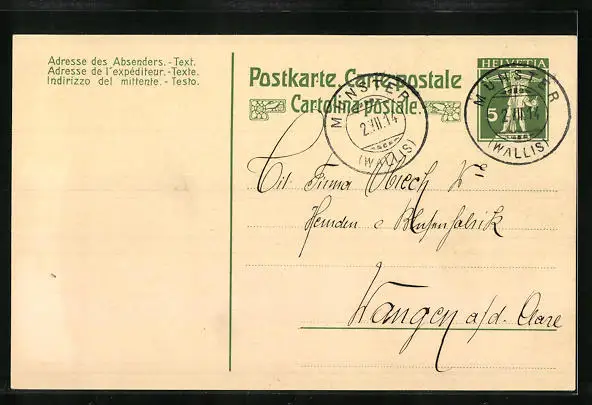 Adresse des Absenders.-Text.
Adresse de l'expéditeur.-Texte.
Indirizzo del mittente.-Testo.
Postkarte. Carte postale
Cartolina postale.
HELVETIA
5
MÜNSTER
2.VII.14
(WALLIS)
MÜNSTER
2.VII.14
(WALLIS)
Tit. Firma
Hemden & Blusenfabrik
Wangen a/d. Aare